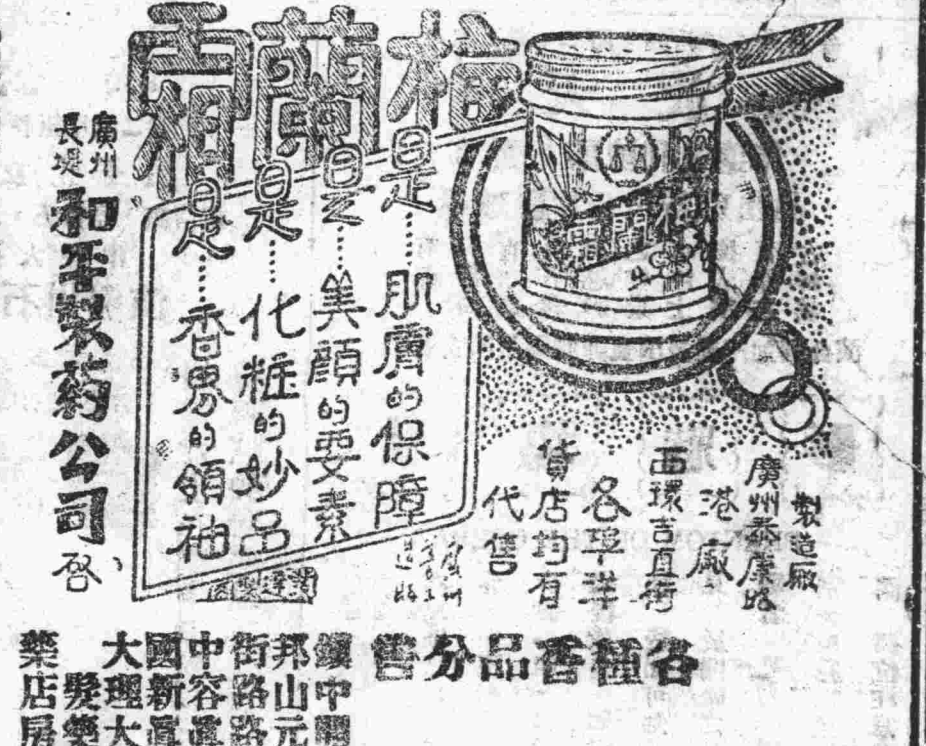 梅蘭霜
是肌膚的保障
是美顏的要素
是化粧的妙品
是香界的領袖
梅蘭霜
製造廠
廣州泰康路
港廠
西環吉直街
各埠洋
貨店均有
代售
廣州
長堤
和平製药公司
啓
各種香品分售
中
邦山元
街路路
中容眞
國新眞
大理大
髮藥
藥店房